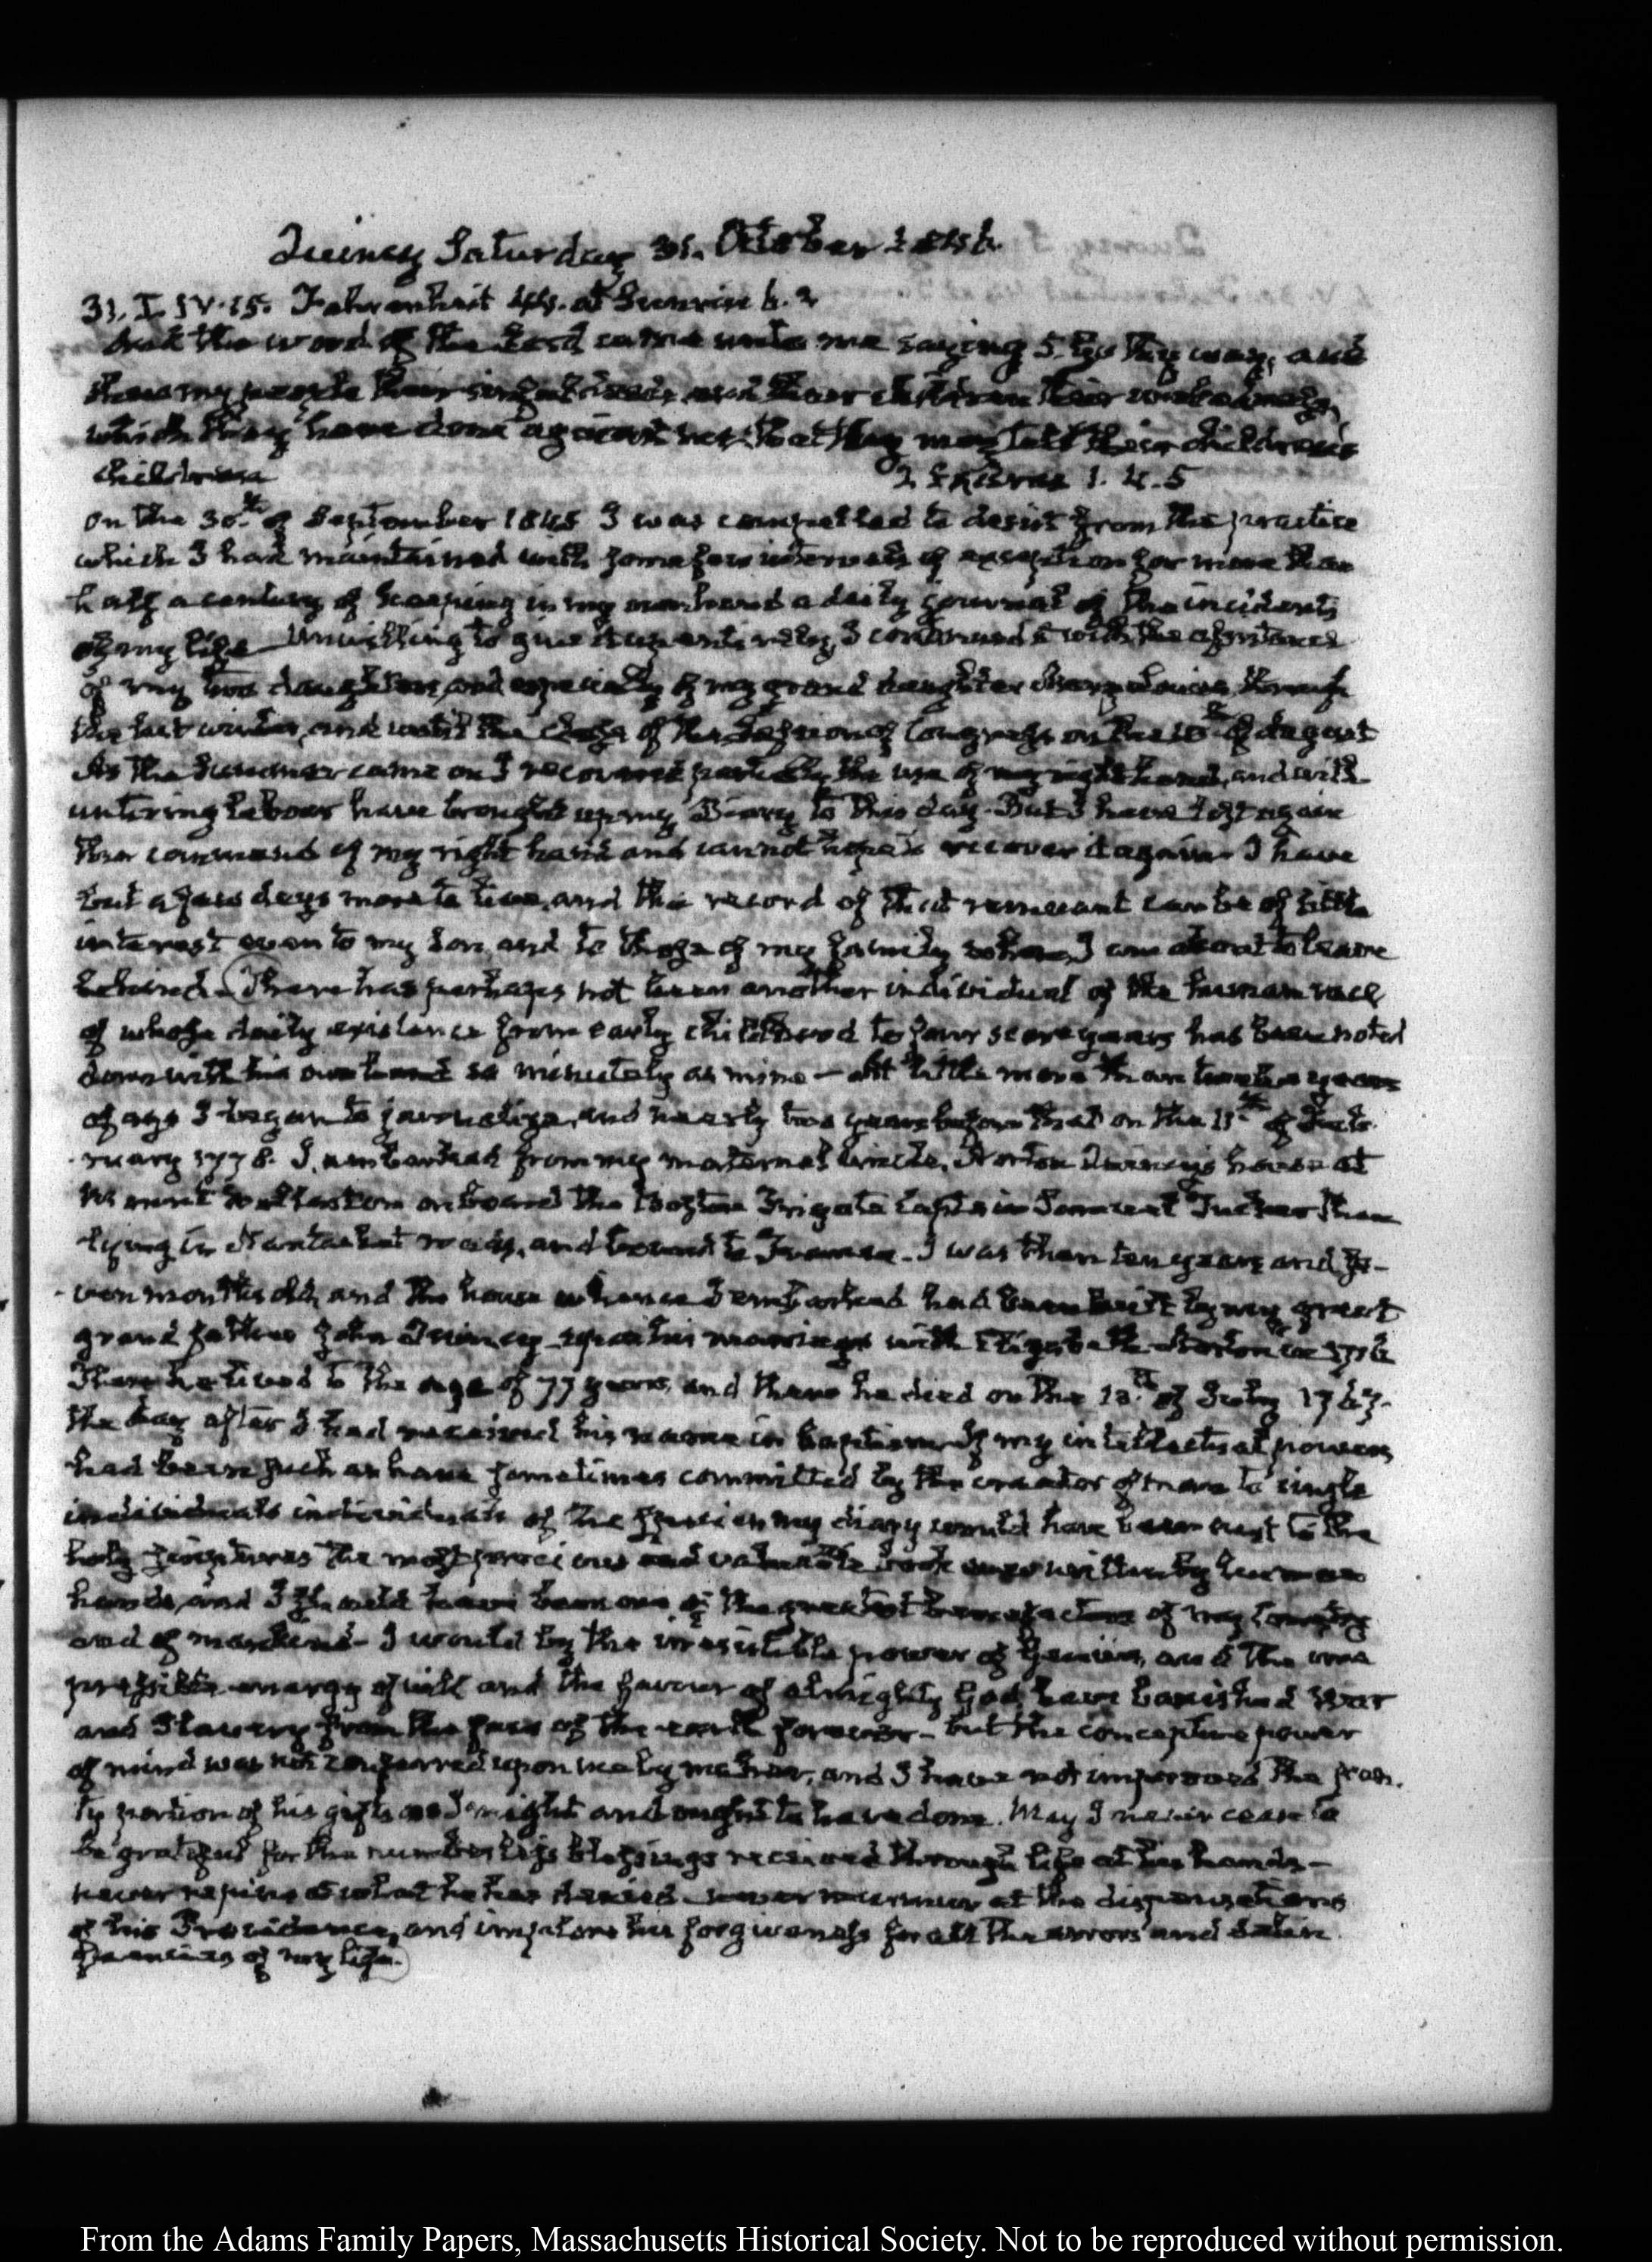 Quincy Saturday 31. October 1846.
31. I. IV.15. Fahrenheit 44. at Sunrise 6.2
And the word of the Lord came unto me saying 5. Go thy way, and
shew my people their sinful deeds, and their children their wickedness,
which they have done against me; that they may tell their childrens
children 2 Esdras 1. 4. 5
On the 30th. of September 1845 I was compelled to desist from the practice
which I had maintained with some few intervals of exception for more than
half a century of keeping in my own hand a daily journal of the incidents
of my life Unwilling to give it up entirely, I continued it with the assistance
of my two daughters, and especially of my grand daughter Mary Louisa, through
the last winter, and until the close of the Session of Congress on the 10th. of August
As the Summer came on I recovered partially the use of my right hand, and with
untiring labour have brought up my Diary to this day. But I have lost again
the command of my right hand and cannot hope to recover it again. I have
but a few days more to live, and the record of that remnant can be of little
interest even to my Son, and to those of my family whom I am about to leave
behind. There has perhaps not been another individual of the human race,
of whose daily existence from early childhood to four score years has been noted
down with his own hand so minutely as mine – At little more than twelve years
of age I began to journalize, and nearly two years before that on the 11th of Feb-
ruary 1778. I embarked from my maternal Uncle, Norton Quincy's house at
Mount Wollaston on board the Boston Frigate Captain Samuel Tucker then
lying in Nantasket roads, and bound to France. I was then ten years and se-
-ven months old, and the house whence I embarked had been built by my great
grand father John Quincy upon his marriage with Elizabeth Norton in 1716
There he lived to the age of 77 years, and there he died on the 13th. of July 1767.
the day after I had received his name in baptism. If my intellectual powers
had been such as have sometimes committed by the creator of man to single
individuals individuals of the species my diary would have been next to the
holy scriptures the most precious and valuable book ever written by human
hands, and I should have been one of the greatest benefactors of my Country
and of mankind – I would by the irresistible power of Genius, and the irre
pressible energy of will and the favour of almighty God, have banished War
and Slavery from the face of the earth forever – but the conceptive power
of mind was not conferred upon me by my maker, and I have not improved the scan.
ty portion of his gifts as I might and ought to have done. May I never cease to
be grateful for the numberless blessings received through life at his hands –
never repine at what he has denied – never murmur at the dispensations
of his Providence, and implore his forgiveness for all the errors and delin
quencies of my life.
From the Adams Family Papers, Massachusetts Historical Society. Not to be reproduced without permission.